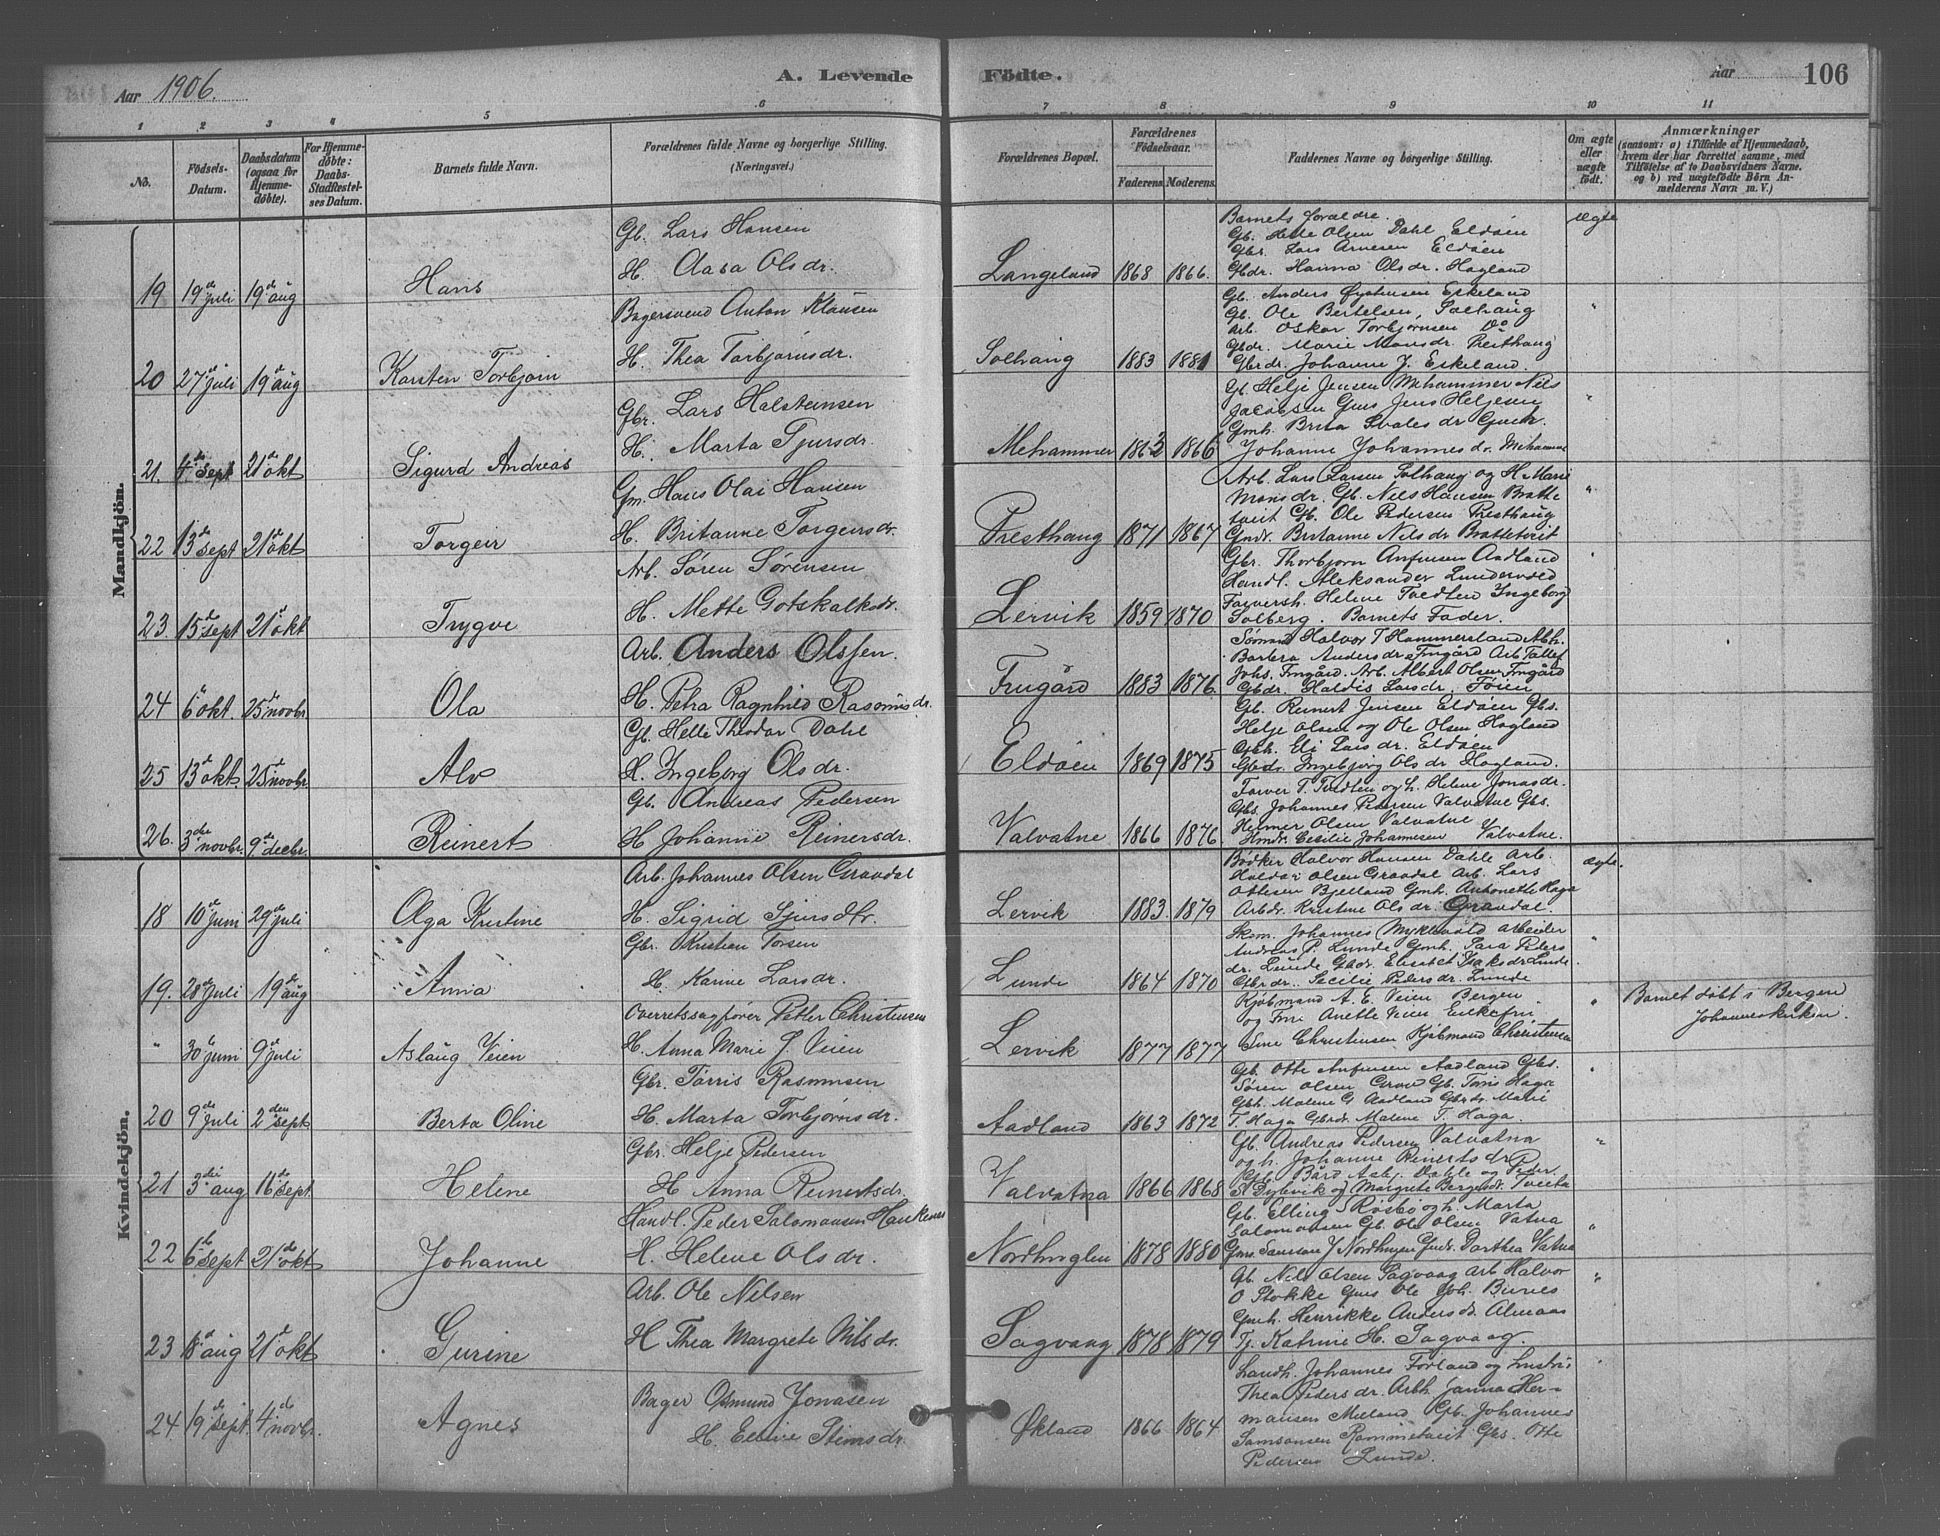 Aar 1906.
A. Levende
Födte.
Aar
106
1 2 3 4 5 6 7 8 9 10 11
No.
Födsels-Datum.
Daabsdatum (ogsaa for Hjemmedöbte).
For Hjemmedöbte: Daabs-Stadfæstelses Datum.
Barnets fulde Navn.
Forældrenes fulde Navne og borgerlige Stilling. (Næringsvei.)
Forældrenes Bopæl.
Forældrenes Födselsaar.
Faderens. Moderens.
Faddernes Navne og borgerlige Stilling.
Om ægte eller uægte født.
Anmærkninger
(saasom: a) i Tilfælde af Hjemmedaab, hvem der har forrettet samme, med Tilföielse af to Daabsvidners Navne. og b) ved uægtefödte Börn Anmelderens Navn m. V.)
Mandkjön.
19 19de juli 19de aug Hans
Gb. Lars Hansen
H. Aasa Olsdr.
Langeland 1868 1866.
Barnets forældre.
Gb. Helle Olsen Dahl Eldöen
Gbr. Lars Arnesen Eldöen
Gbdr. Hanna Olsdr. Hagland
ægte
20 27de juli 19de aug Karsten Torbjørn
Bagersvend Anton Klausen
H. Thea Torbjørnsdr.
Solhaug 1883 1881
Gb. Anders Øysteinsen Eskeland
Gb. Ole Bertelsen, Solhaug
Arb. Oskar Torbjørnsen Do
Gbdr. Marie Monsdr. Presthaug
Gbrdr. Johanne J. Eskeland
"
21. 4de sept 21de okt Sigurd Andreas
Gbr. Lars Halsteinsen
H. Marta Sjursdr.
Mehammer 1863 1866
Gb. Helje Jensen Mehammer Nils
Jacobsen Gms Jens Heljesen
Gmh. Brita
Johanne Johannesdr. Mehammer
"
22 13de sept 21de okt Torgeir
Gm. Hans Olai Hansen
H. Britanne Torgeirsdr.
Presthaug 1871 1867
Arb. Lars Larsen Solhaug og H. Marie
Monsdr. Gb. Nils Hansen Bratte
tveit Gb. Ole Pedersen Presthaug
Gmdr. Britanne Nilsdr Bratteteveit
"
23. 15de sept 21de okt Trygve
Arb. Søren Sørensen
H. Mette Gotskalksdr.
Lervik 1859 1870
Gbr. Thorbjørn Anfinsen Aadland
Handl. Aleksander Lundervold
Farversh. Helene Tvedten Ingeborg
Solberg. Barnets Fader.
24 6te okt. 25de novbr Ola
Arb. Anders Olsen.
H. Petra Ragnhild Rasmusdr.
Frugård 1883 1876.
Sømand Halvor T Hammersland Arb.
Barbra Andersdr. Frugård Arb Tallef
Johs. Frugård. Arb. Albert Olsen Frugård
Gbdr. Haldis Larsdr. Føien
25 13de okt. 25de novbr. Alv
Gb. Helle Theodor Dahl
H. Ingeborg Olsdr.
Eldøen 1869 1875
Gb. Reinert Jensen Eldøen Gbs.
Helje Olsen og Ole Olsen Hogland
Gbh. Eli Larsdr. Eldøen
Gbdr. Ingebjørg Olsdr Hogland.
26. 3die novbr. 9de decbr. Reinert
Gb. Andreas Pedersen
H Johanne Reinersdr.
Valvatne 1866 1876
Farver T. Tvedten og h. Helene Jonasdr.
Gbs. Johannes Pedersen Valvatne Gbs.
Helmer Olsen Valvatne
Hmdr. Cecilie Johannesen Valvatne.
Kvindekjön.
18 10de juni 29de juli Olga Kristine
Arb. Johannes Olsen Gravdal
H. Sigrid Sjursdtr.
Lervik 1883. 1879
Bødker Halvor Hansen Dahle Arb.
Haldor Olsen Gravdal Arb. Lars
Ottesen Bjelland Gmh. Anthonette Haga
Arbdr. Kristine Olsdr. Gravdal.
ægte.
19. 28de juli 19de aug Anna
Gbr. Kristian Torsen
H. Karine Larsdr.
Lunde 1864 1870
Skom. Johannes Myklevold arbeider
Andreas P. Lunde Gmh. Sara Peders
dr. Lunde Gbdr. Elisabet Isaksdr Lunde
Gbrdr. Secilie Pedersdr. Lunde
"
" 30te juni 9de juli Aslaug Veien
Overretssagfører Petter Christensen
H. Anna Marie J. Veien
Lervik 1877 1877
Kjøbmand A. E. Veien Bergen
og Fru Anette Veien Enkefru
Sine Christensen Kjøbmand Christensen
"
Barnet døbt i Bergen
Johanneskirken.
20 9de juli 2den sept Berta Oline
Gbr. Tørris Rasmussen
H. Marta Torbjørnsdr.
Aadland 1863 1872
Gb. Otte Anfinsen Aadland Gbs.
Søren Olsen Gb. Tørris Haga
Gbh. Malene G Aadland Gbrdr. Marie
T. Haga Gbrdr. Malene T. Haga.
21 3die aug 16de sept Helene
Gbr. Helje Pedersen
H Anna Reinertsdr.
Valvatna 1866 1868
Gb. Andreas Pedersen Valvatna
og h. Johanne Reinertsdr
Gbs Bård Asbj. Dahle og Peder
S. Dybvik og Margrete Bergesdr. Tveita
"
22 6te sept 21de okt Johanne
Handl. Peder Salomonsen Haukenes
H. Helene Olsdr.
Nordhuglen 1878 1880
Gb. Elling Røsbø og h. Marta
Salomonsen Gb. Ole Olsen Vatna
Gms Samson J Nordhuglen Gmdr. Dorthea Vatna
"
23 18de aug 21de okt Gurine
Arb. Ole Nilsen
H Thea Margrete Nilsdr.
Sagvaag 1878 1879
Gb. Nils Olsen Sagvaag Arb Halvor
O Stokke Gms Ole Joh. Bunes
Gmh. Henrikke Andersdr. Almaas
Tj. Katrine H. Sagvaag.
"
24 19de sept. 4de novbr. Agnes
Bager Osmund Jonasen
H. Elline Steinsdr.
Økland 1866 1864
Landh. Johannes Førland og hustru
Thea Pedersdr. Arbh. Janna Her-
mansen Meland Gb. Johannes
Samsonsen Rommetveit Gbs. Otte
Pedersen Lunde.